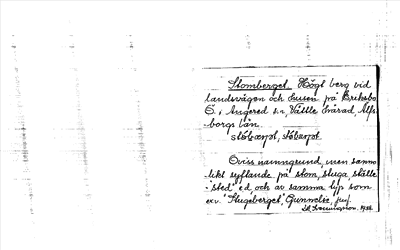 Stomberget. Högt berg vid
landsvägen och husen på Eriksbo
Ö. i Angered sn, Vättle härad, Älfs-
borgs län.
Oviss namngrund, men sanno-
likt syftande på stom, stuga, ställe
'sted' ed, och av samma typ som
exv. 'Stugeberget', Gunnelse, jmf.
1938.